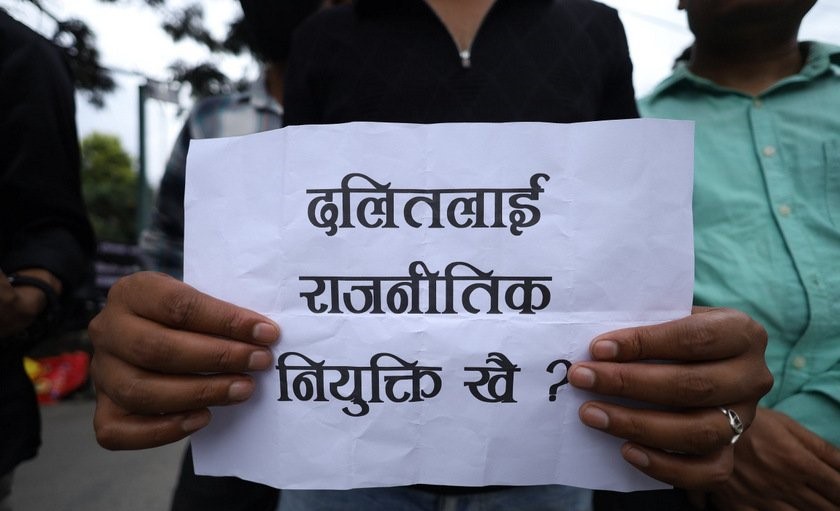 दलितलाई
राजनीतिक
नियुक्ति खै ?